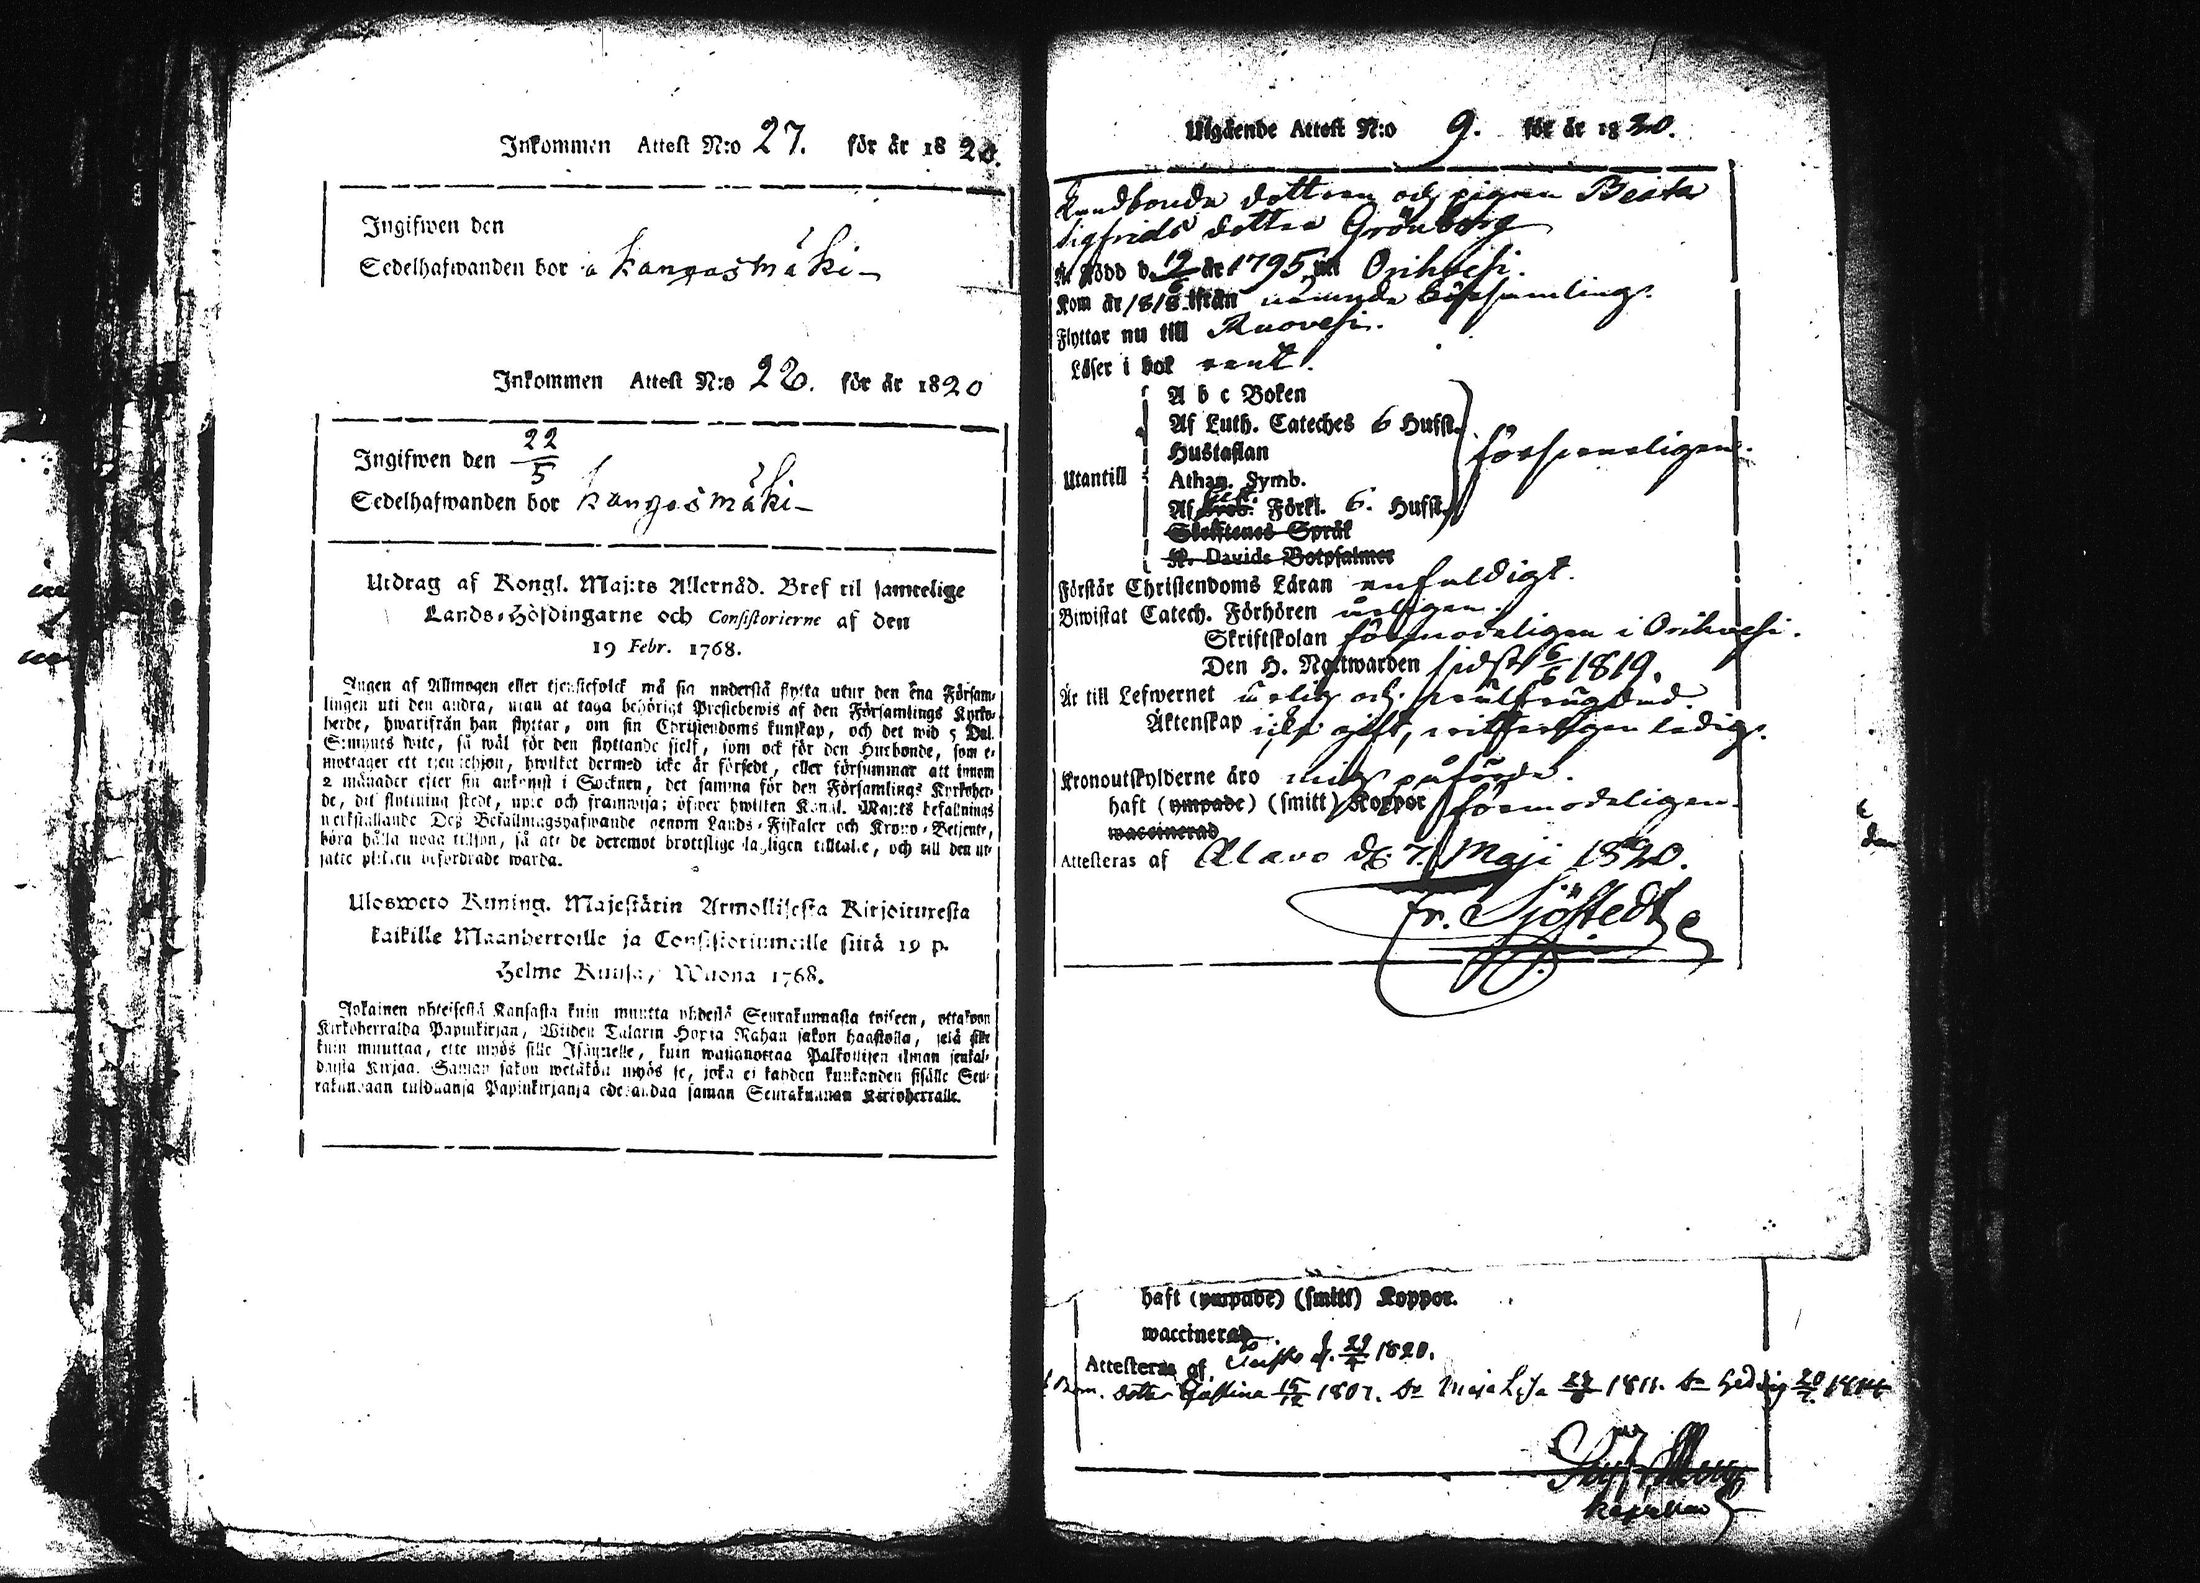 Inkommen Attest N:o 27. för år 1820.
Ingifwen den
Sedelhafwanden bor å Kangasmäki
Inkommen Attest N:o 28. för år 1820
Ingifwen den 22/5
Sedelhafwanden bor Kangasmäki
Utdrag af Kongl. Maj:ts Allernåd. Bref til samtelige
Lands-Höfdingarne och Consistorierne af den
19 Febr. 1768.
Ingen af Allmogen eller tjenstefolck må sig understå flytta utur den ena Försam-
lingen uti den andra, utan at taga behörigt Prestebewis af den Församlings Kyrko-
herde, hwarifrån han flyttar, om sin Christendoms kunskap, och det wid 5 Dal.
S:mynts wite, så wäl för den flyttande sjelf, som ock för den Husbonde, som e-
mottager ett tjenstehjon, hwilket dermed icke är försedt, eller försummar att innom
2 månader efter sin ankomst i Socknen, det samma för den Församlings Kyrkoher-
de, dit flyttning skedt, upte och framwisa; öfwer hwilken Kongl. Maj:ts befallnings
werkställande Deß Befallningshafwande genom Lands-Fiskaler och Krono-Betjente,
böra hålla noga tillsyn, så att de deremot brottslige lagligen tilltalte, och till den ut-
satte plikten befordrade warda.
Ulosweto Kuning. Majestätin Armollisesta Kirjoituxesta
kaikille Maanherroille ja Consistoriumeille siitä 19 p.
Helme Kuusa, Wuona 1768.
Jokainen yhteisestä Kansasta kuin muutta yhdestä Seurakunnasta toiseen, ottakoon
Kirkoherralda Papinkirjan, Wiiden Talarin Hopia Rahan sakon haastolla, sekä sille
kuin muuttaa, ette myös sille Isännelle, kuin wastanottaa Palkollisen ilman senkal-
daista Kirjaa. Saman sakon wetäköön myös se, joka ei kahden kuukauden sisälle Seu-
rakundaan tulduansa Papinkirjansa edesandaa saman Seurakunnan Kirkoherralle.
Utgående Attest N:o 9. för år 1820.
Landbonde dottren och pigan Beata
Sigfrids dotter Grönberg
Är född d. 19/6 år 1795, uti Orihvesi.
Kom år 1818 ifrån nämnde Församling.
Flyttar nu till Ruovesi.
Läser i bok rent.
A b c Boken
Af Luth. Cateches 6 Hufst.
Hustaflan
Utantill Athan. Symb.
Af Förkl. 6. Hufst.
Skriftenes Språk
K. Davids Botpsalmer
Förstår Christendoms Läran enfaldigt.
Biwistat Catech. Förhören årligen.
Skriftskolan förmodeligen i Orihvesi.
Den H. Nattwarden sidst 6/6 1819.
Är till Lefwernet ärlig och
Äktenskap icke gift, ledig.
Kronoutskylderne äro påförde.
haft (ympade) (smitt) Koppor förmodeligen.
waccinerad
Attesteras af Alavo d. 7. Maji 1820.
Fr. Sjöstedt
haft (ympade) (smitt) Koppor.
waccinerad.
Attesteras af 1820.
Barn. dotter 15/12 1807. D:o Maja Lisa 1811. D:o Hedvig 1814